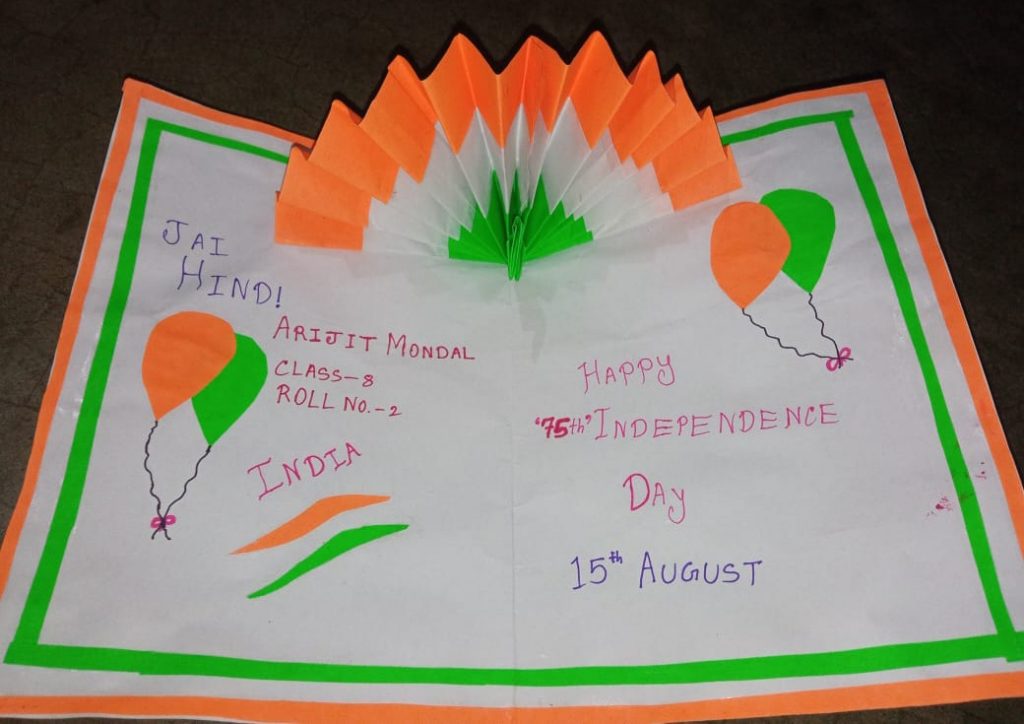 JAI
HIND!
ARIJIT MONDAL
CLASS-8
ROLL NO.-2
INDIA
HAPPY
'75th' INDEPENDENCE
DAY
15th AUGUST